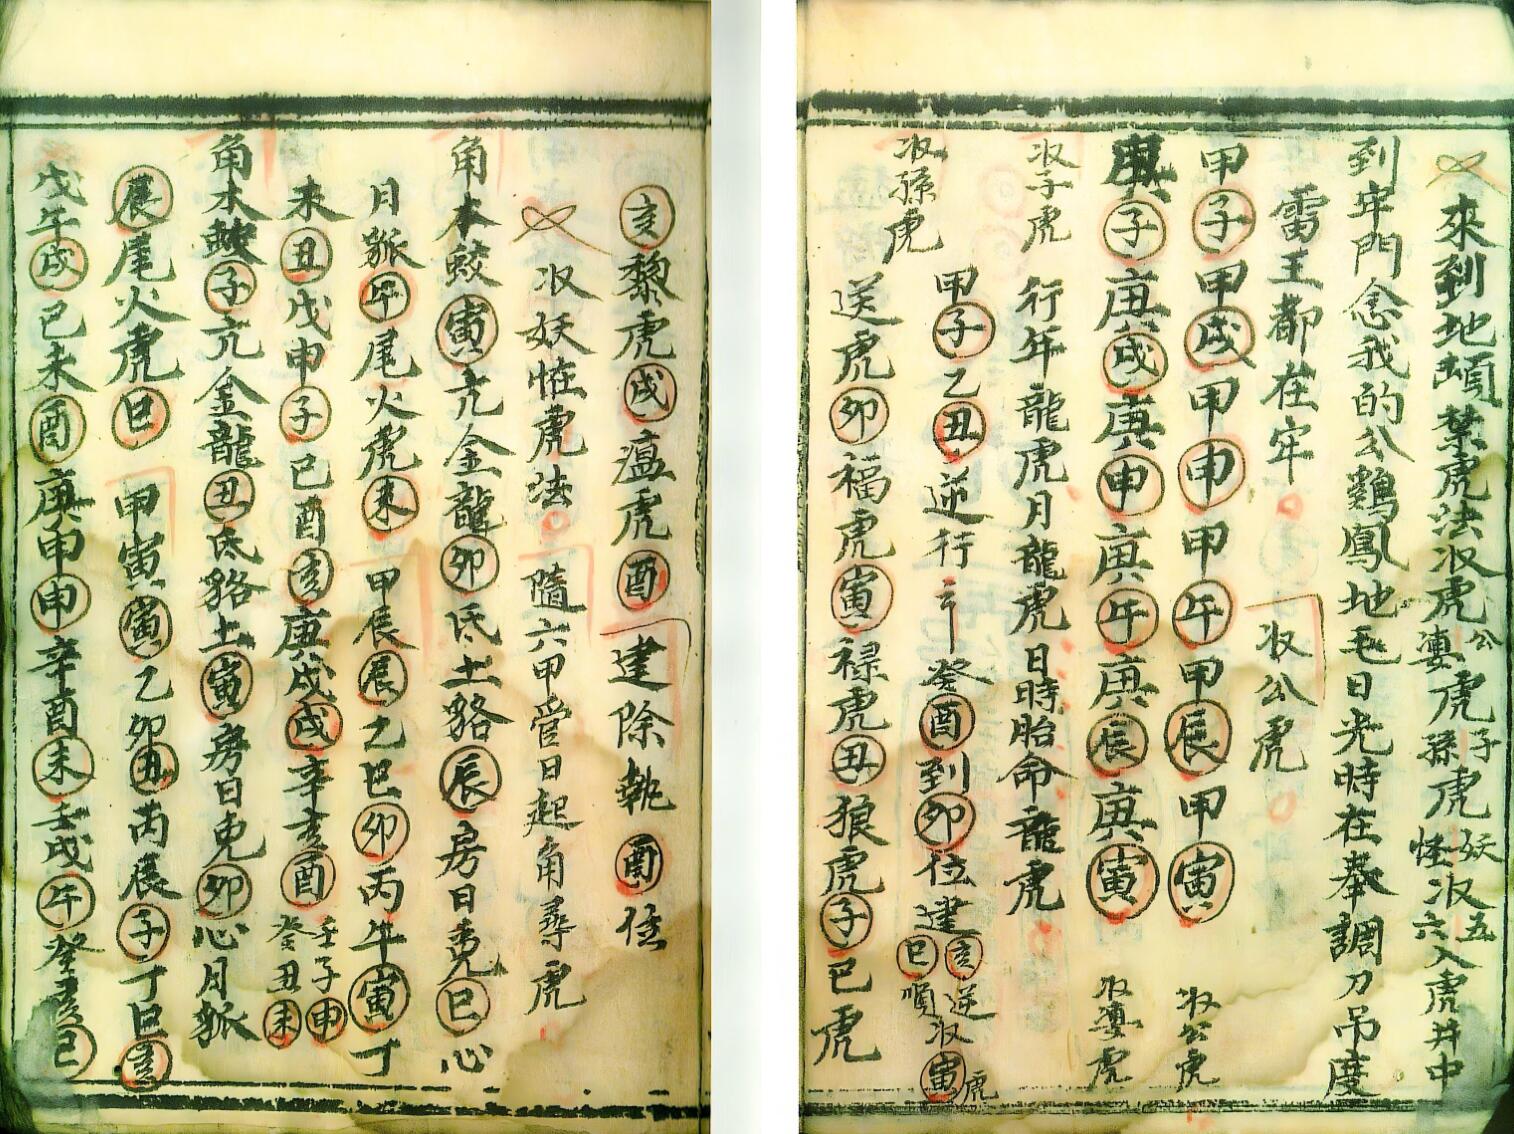 來到地頭禁虎法収虎公婆虎子孫虎妖怪収五六入虎井中
到牢門念我的公鷄鳳地毛日光時在奉調刀吊度
雷王都在牢 収公虎
甲子甲戌甲申甲午甲辰甲寅 収公虎
庚子庚戌庚申庚午庚辰庚寅 収婆虎
収子虎 行年龍虎月龍虎日時胎命龍虎
収孫虎 甲子乙丑逆行 癸酉到卯位建亥逆巳順収寅虎
送虎卯福虎寅禄虎丑狼虎子巳虎
亥黎虎戌瘟虎酉 建除執酉位
収妖怪虎法 隨六甲管日起角尋虎
角木蛟寅亢金龍卯氐土貉辰房日兔巳心
月狐午尾火虎未 甲辰辰乙巳卯丙午寅丁
未丑戊申子己酉亥庚戌戌辛亥酉壬子申癸丑未
角木蛟子亢金龍丑氐貉土寅房日兔卯心月狐
辰尾火虎巳 甲寅寅乙卯丑丙辰子丁巳亥
戊午戌己未酉庚申申辛酉未壬戌午癸亥巳